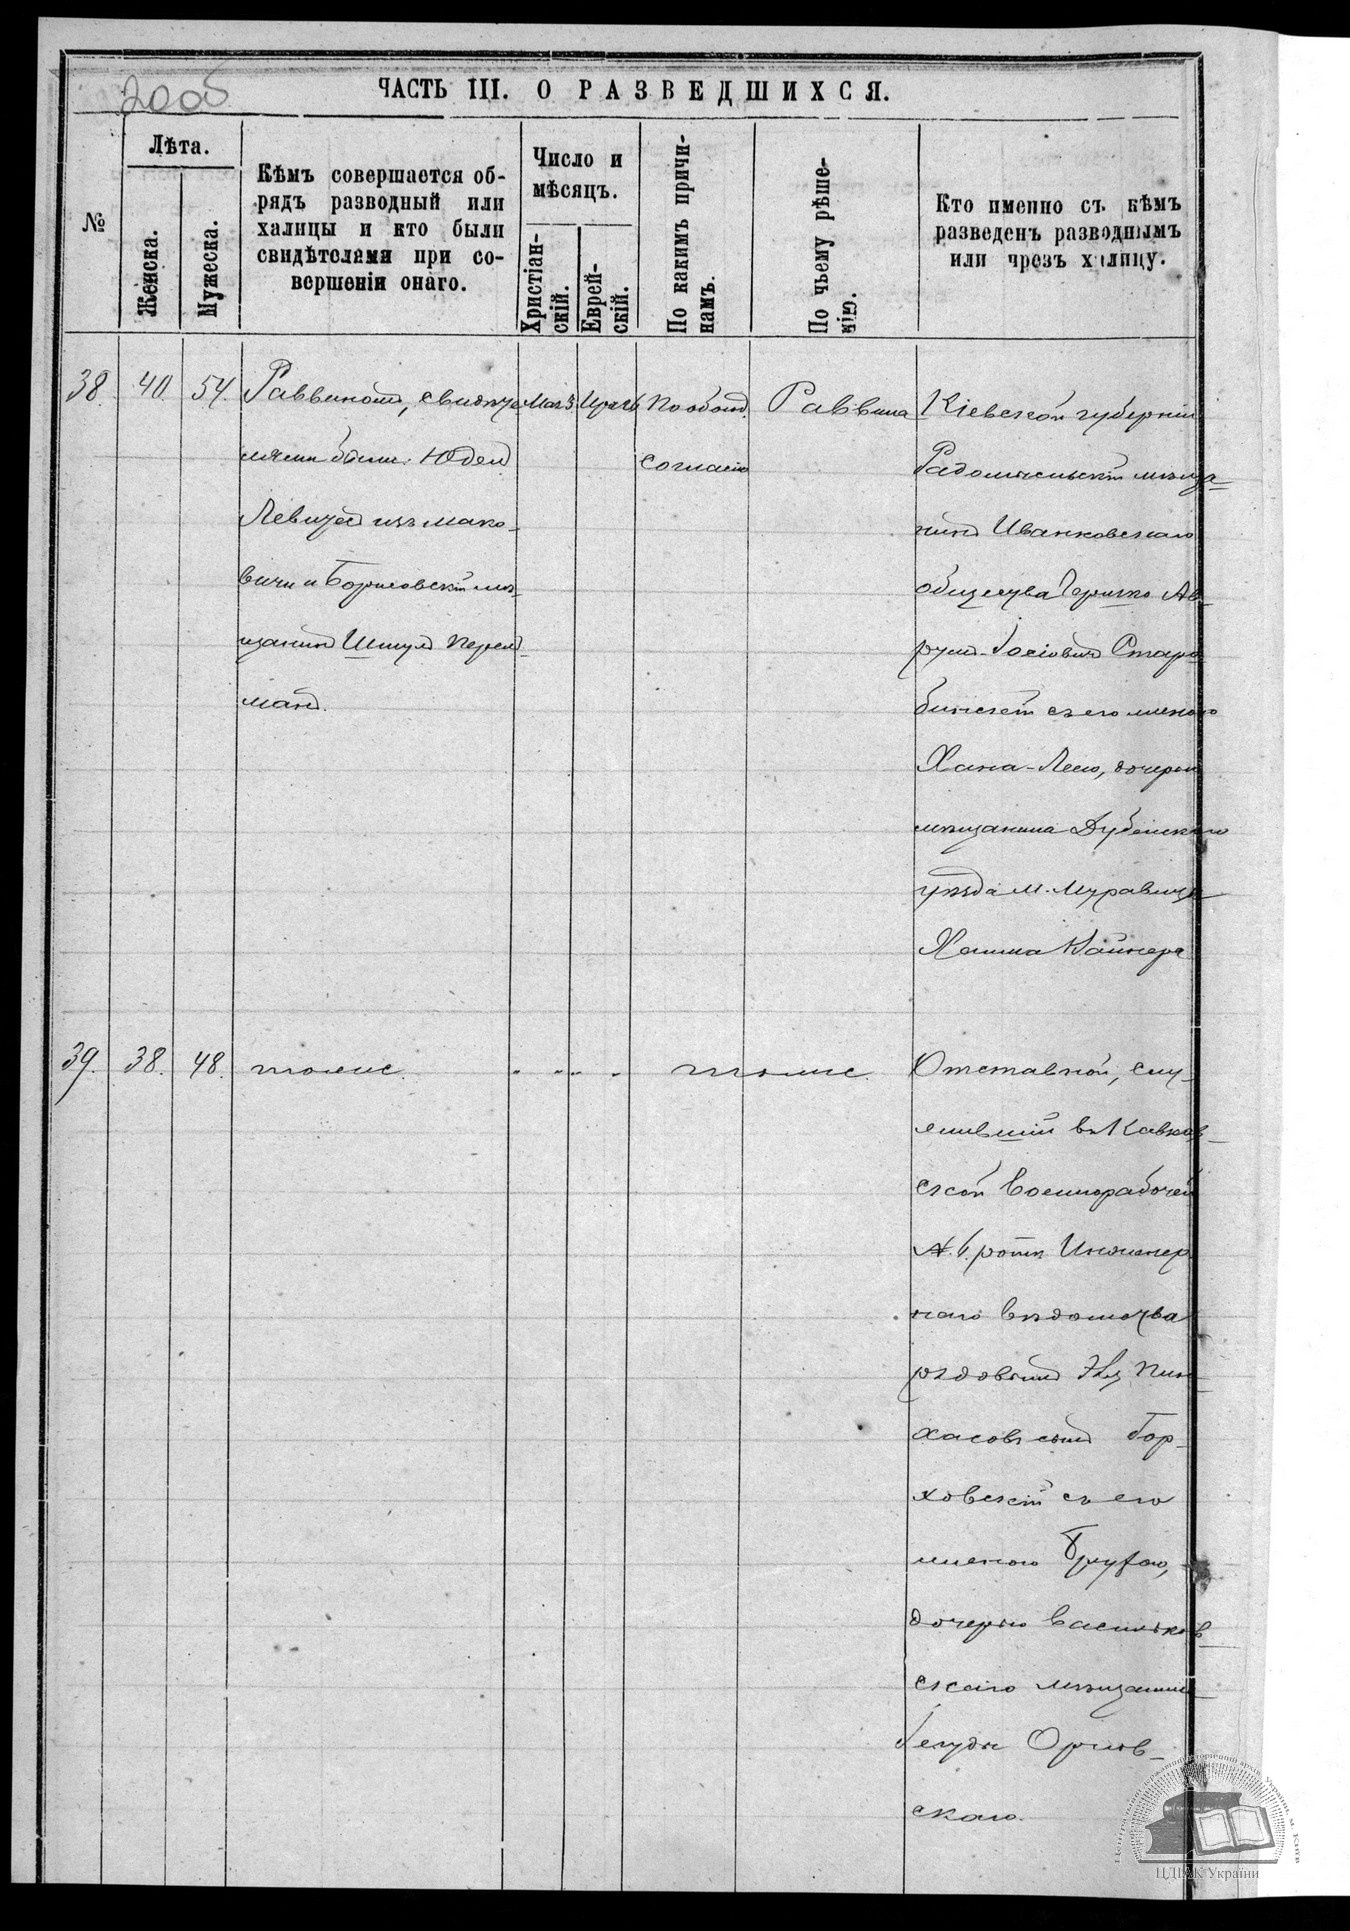 200об
ЧАСТЬ III. О РАЗВЕДШИХСЯ.
№
Лѣта.
Женска.
Мужеска.
Кѣмъ совершается об-
рядъ разводный или
халицы и кто были
свидѣтелями при со-
вершеніи онаго.
Число и
мѣсяцъ.
Христіан-
скій.
Еврей-
скій.
По какимъ причи-
намъ.
По чьему рѣше-
нію.
Кто именно съ кѣмъ
разведенъ разводнымъ
или чрезъ халицу.
38. 40 54.
Раввиномъ, свидѣте
лями были: Юдель
из мако-
вичи и Борисовскій мѣ-
щанинъ Шмуль Перель-
манъ.
По обоюд.
согласію
Раввина
Кіевской губерніи
Радомысльскій мѣща-
нинъ Иванковскаго
общества Гершко Ав-
румъ-Іосіовичъ Старо
бинскій съ его женою
Хана-Леею, дочерью
мѣщанина Дубенскаго
уѣзда м. Муравица
Хаима Койнера
39. 38. 48. тоже. " " " " тоже.
Отставной, слу-
жившій въ Кавказ-
ской Военнорабочей
№ 6. ротѣ Инженер
наго вѣдомства
рядовымъ Пин-
хасовъ сынъ Бор-
ховскій съ его
женою
дочерью Васильков-
скаго мѣщанина
Іегуды Орлов-
скаго.
Центральний державний історичний архів України, м. Київ
ЦДІАК України